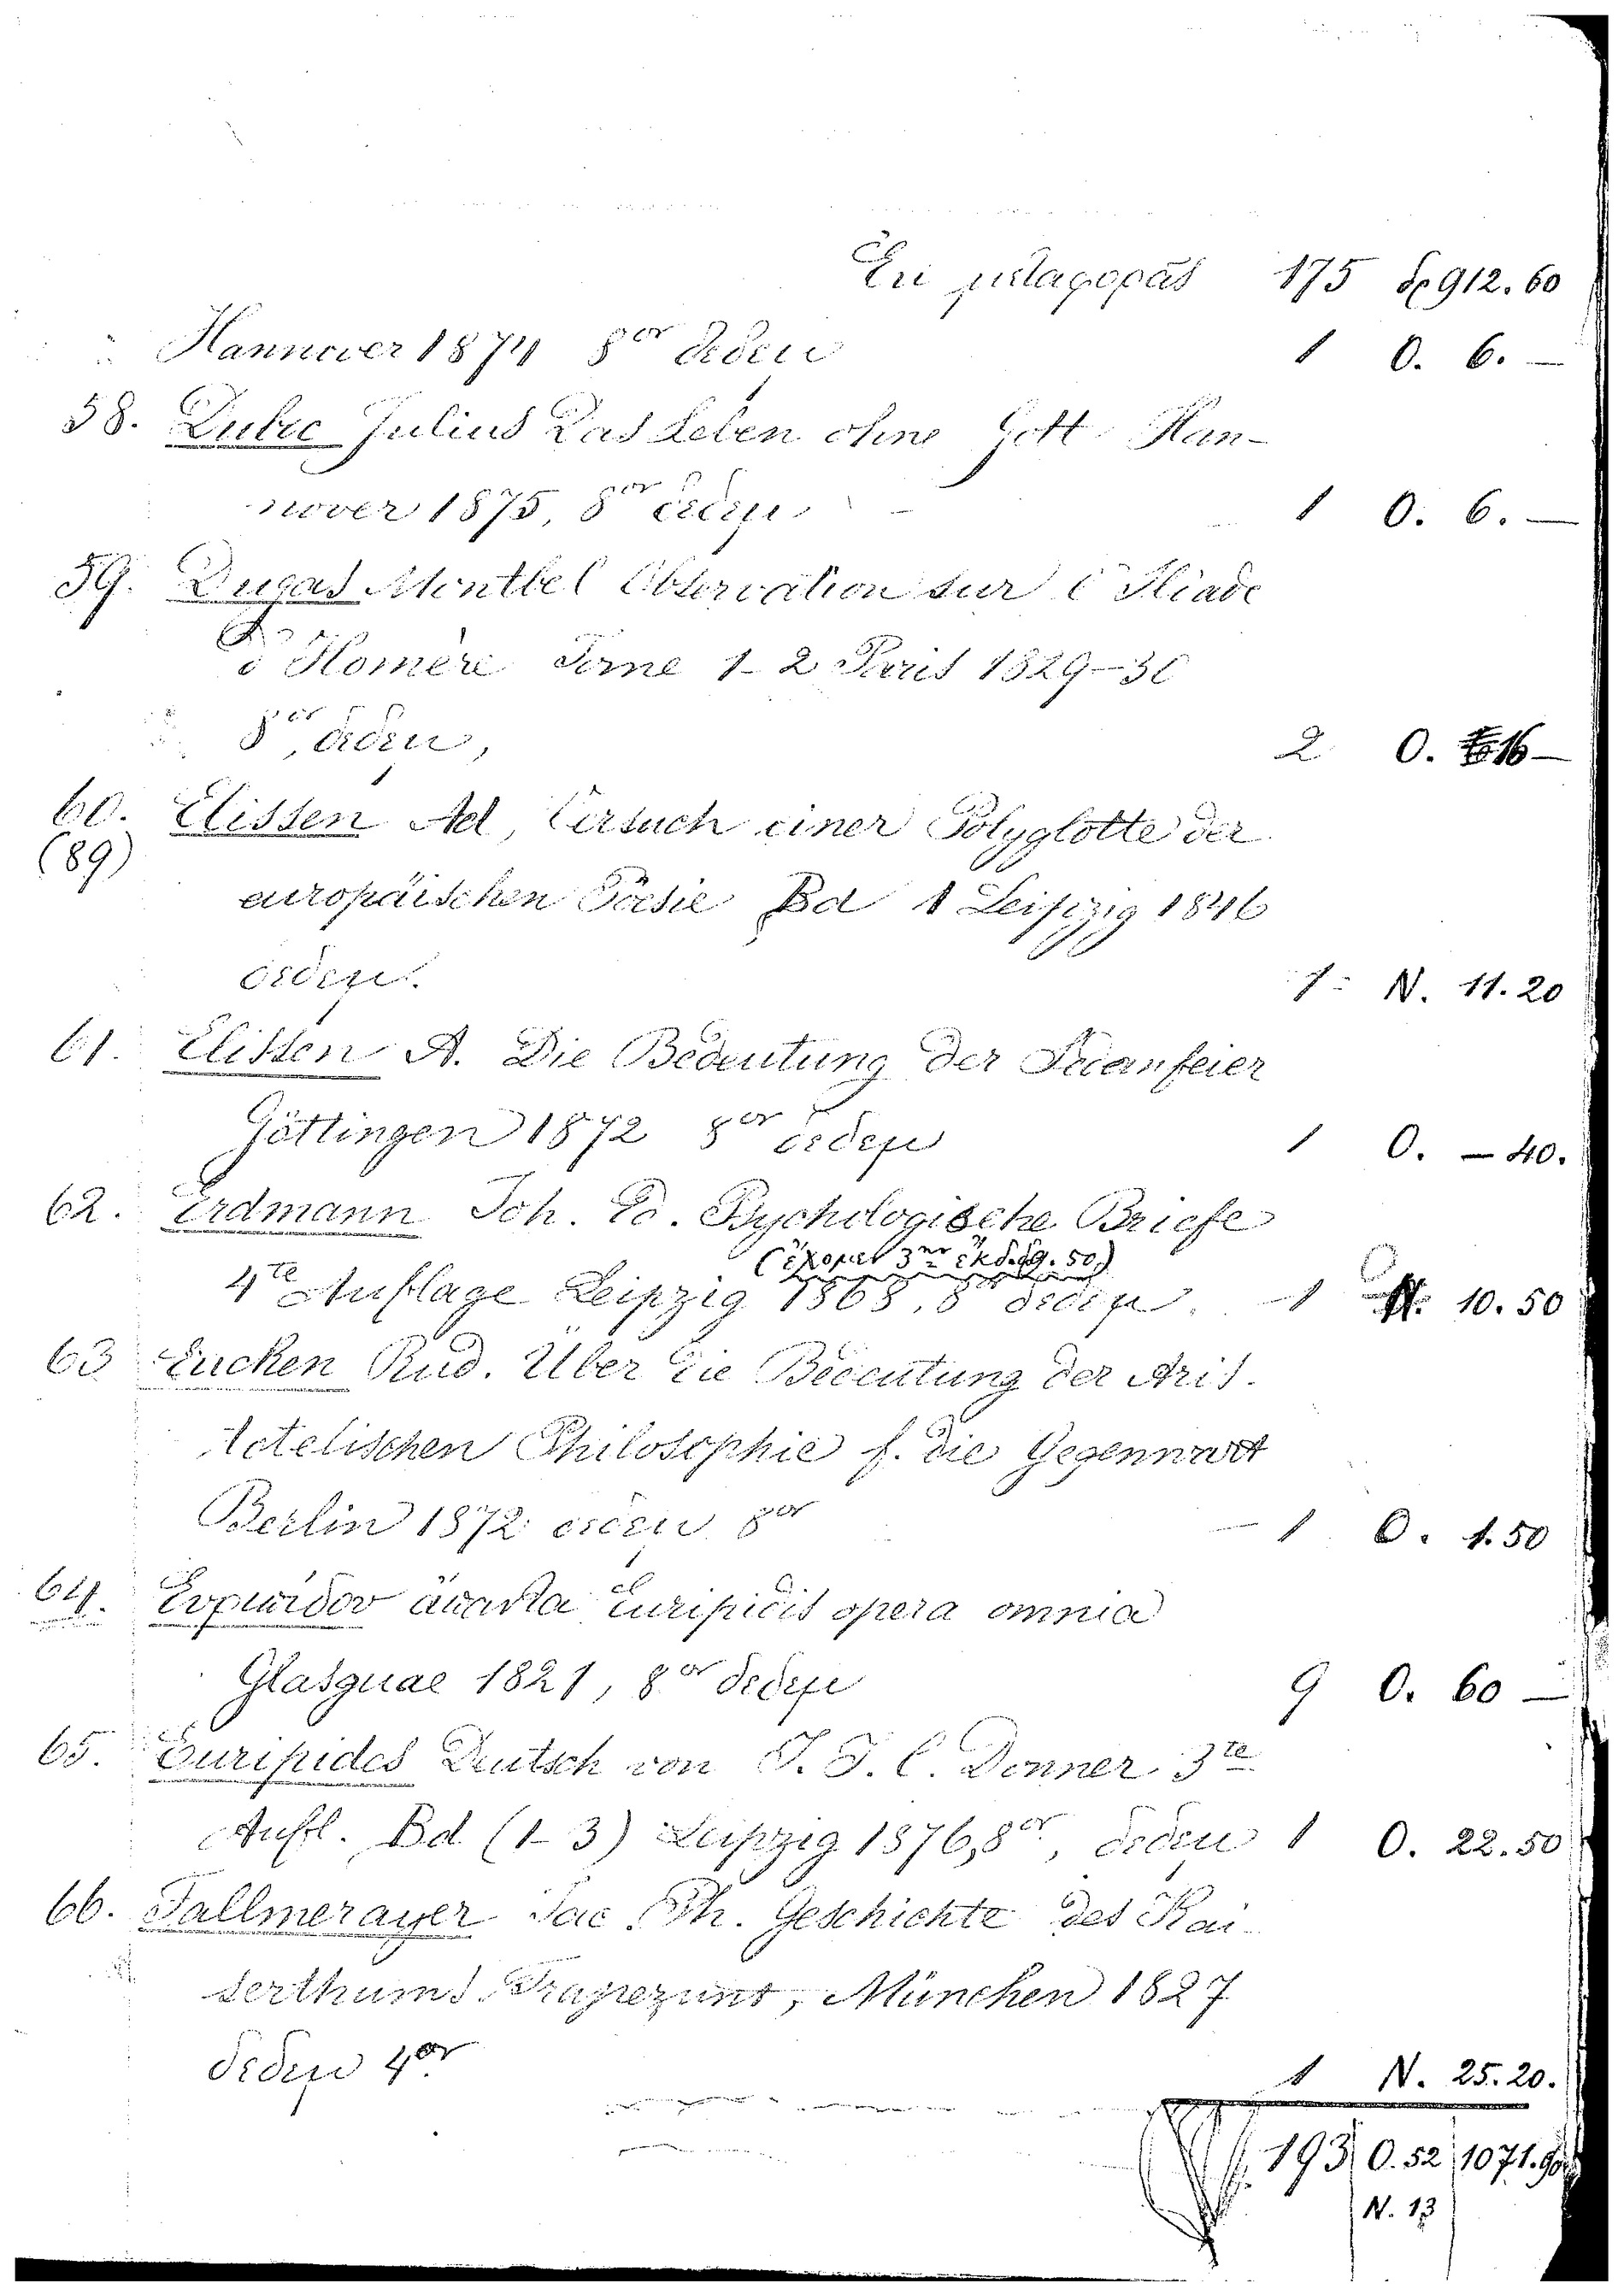 Ἐκ μεταφορᾶς 175 δρ 912.60
Hannover 1874 8ον δεδεμ 1 O. 6. —
58. Duboc Julius Das Leben ohne Gott Han-
nover 1875, 8ον δεδεμ 1 O. 6. —
59. Dugas Montbel Observation sur l'Iliade
d'Homère Tome 1-2 Paris 1829-30
8ον, δεδεμ, 2 O. 16 —
60. Ellissen Ad, Versuch einer Polyglotte der
(89)
europäischen Poesie Bd 1 Leipzig 1846
δεδεμ. 1 N. 11.20
61. Ellissen A. Die Bedeutung der Feier
Göttingen 1872 8ον δεδεμ 1 O. — 40.
62. Erdmann Joh. Ed. Psychologische Briefe
3ην ἐκδ. 50)
4te Auflage Leipzig 1868, 8ον δεδεμ. 1 10.50
63 Eucken Rud. Über die Bedeutung der Aris-
totelischen Philosophie f. die Gegenwart
Berlin 1872 δεδεμ 8ον 1 O. 1.50
64. Εὐριπίδου ἅπαντα Euripidis opera omnia
Glasguae 1821, 8ον δεδεμ 9 O. 60 —
65. Euripides Deutsch von J. J. C. Donner 3te
Aufl. Bd (1-3) Leipzig 1876, 8ον, δεδεμ 1 O. 22.50
66. Fallmerayer Jac. Ph. Geschichte des Kai-
serthums Trapezunt, München 1827
δεδεμ 4ον 1 N. 25.20.
193 O. 52 1071.90
N. 13